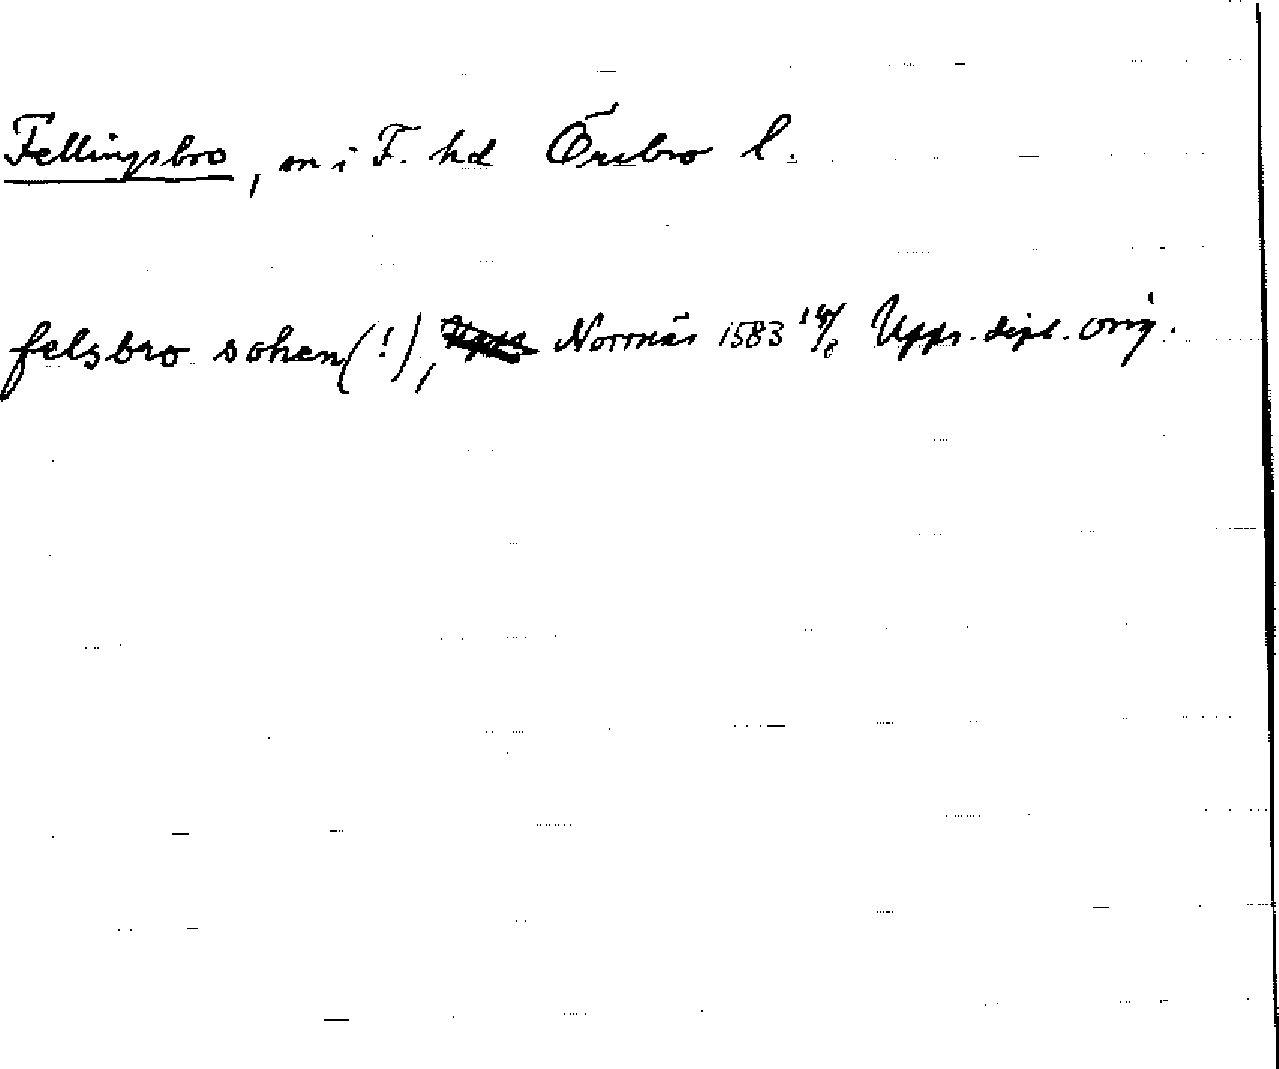 Fellingsbro, sn i F. hd Örebro l.
felsbro sohen (!), Norrnäs 1583 19/6 Upps. dipl. orig.